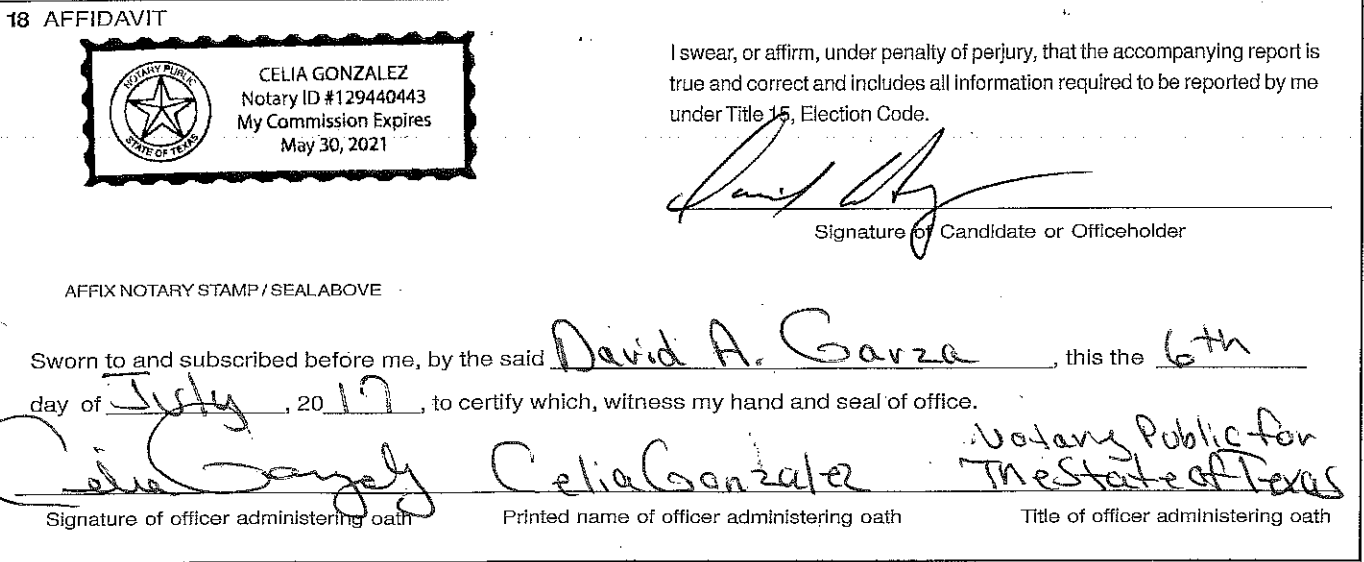 18 AFFIDAVIT
NOTARY PUBLIC
STATE OF TEXAS
CELIA GONZALEZ
Notary ID #129440443
My Commission Expires
May 30, 2021
I swear, or affirm, under penalty of perjury, that the accompanying report is
true and correct and includes all information required to be reported by me
under Title 15, Election Code.
Signature of Candidate or Officeholder
AFFIX NOTARY STAMP / SEAL ABOVE
Sworn to and subscribed before me, by the said David A. Garza, this the 6th
day of July, 2017, to certify which, witness my hand and seal of office.
Celia Gonzalez Celia Gonzalez Notary Public for
The State of Texas
Signature of officer administering oath Printed name of officer administering oath Title of officer administering oath